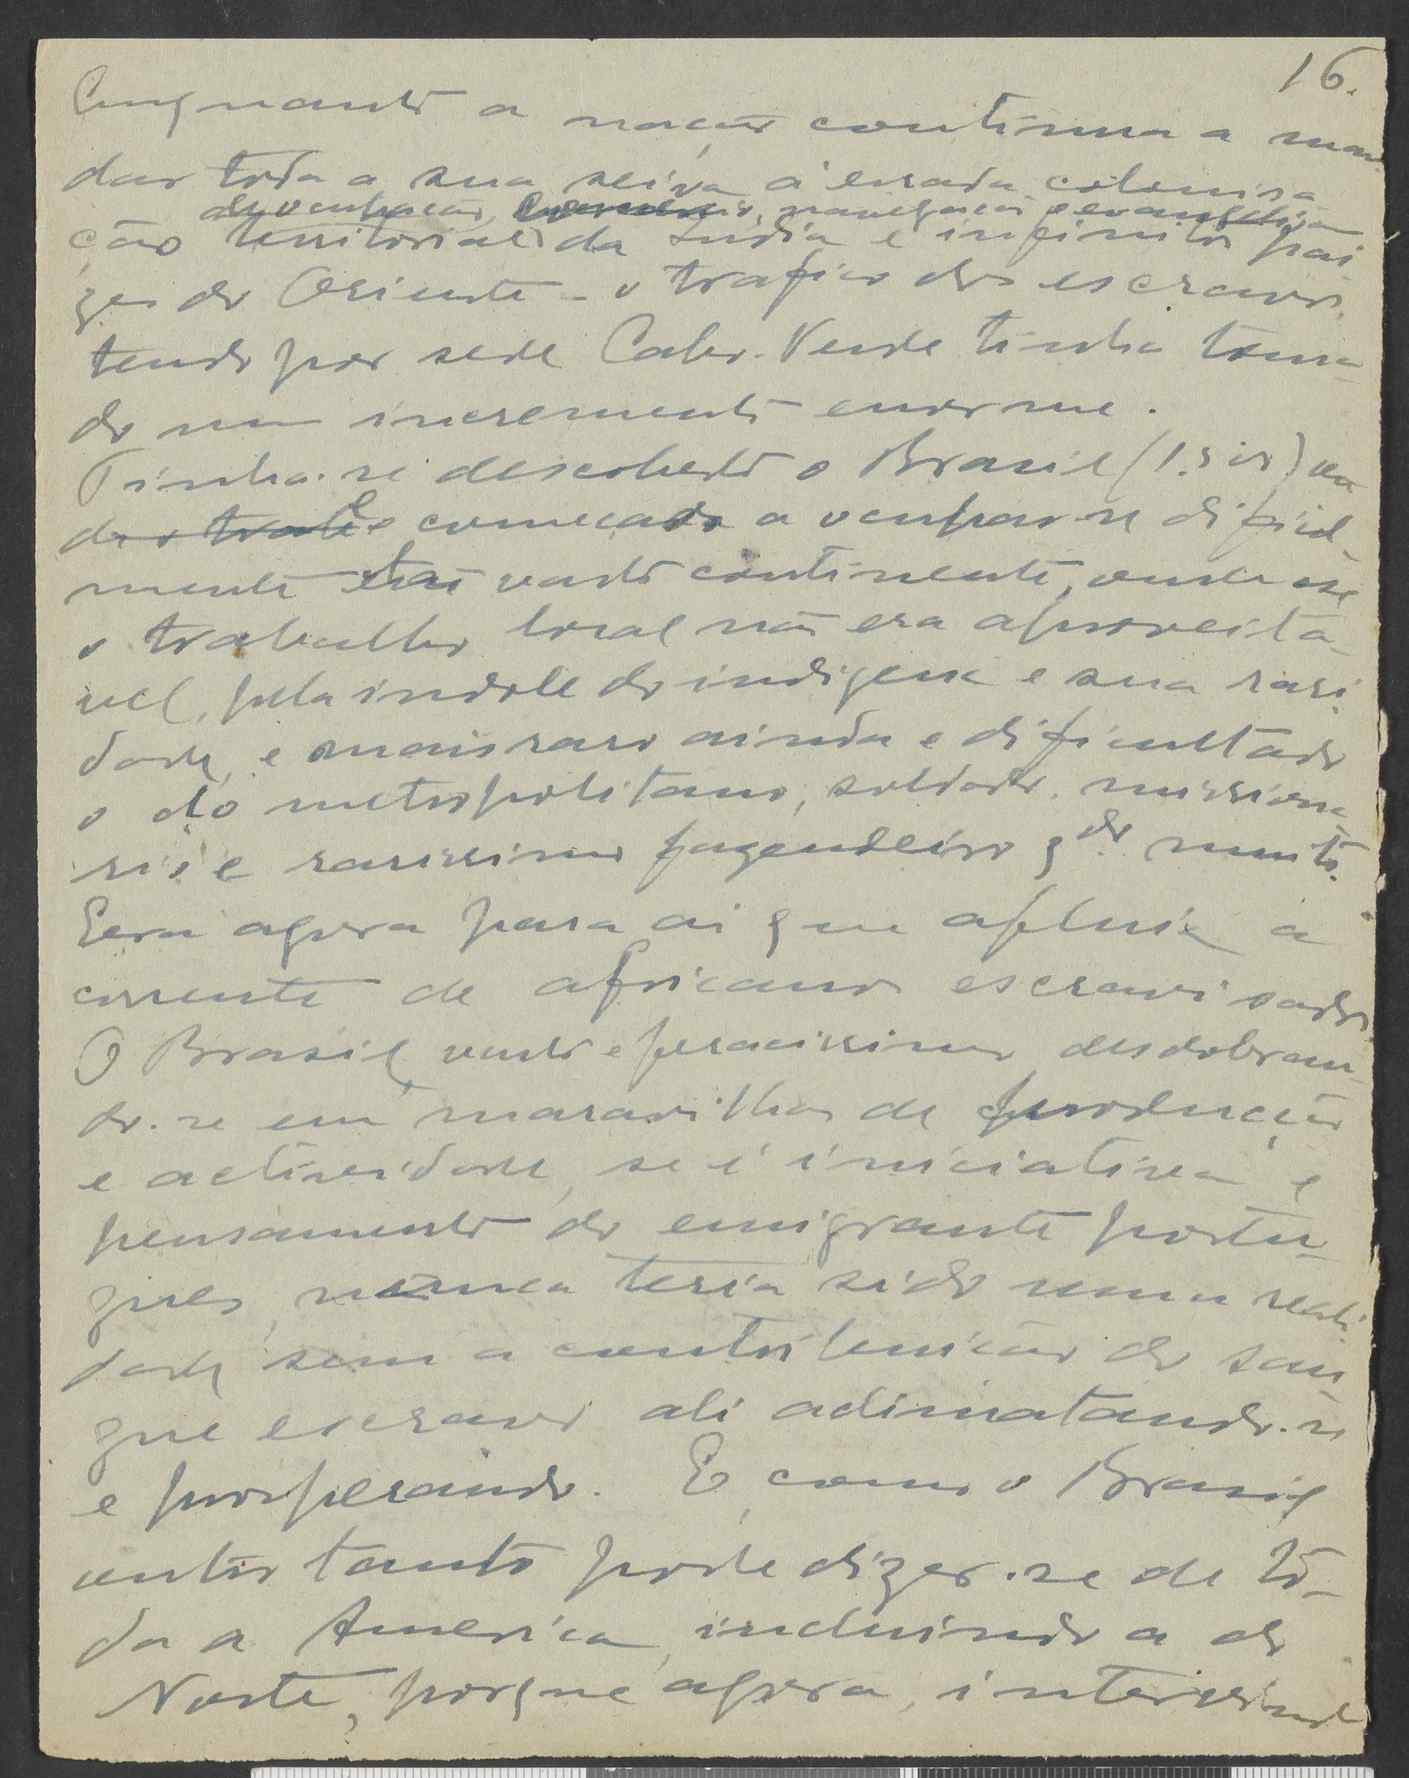 16.
Emquanto a nação continua a man
dar toda a sua seiva á errada colonisa
de ocupação, navegação e evangelisa
ção territorial da India e infinitos pai
zes do Oriente - o trafico dos escravos,
tendo por sede Cabo-Verde tinha toma-
do um incremento enorme.
Tinha-se descoberto o Brasil
começado a ocupar-se dificil-
mente tão vasto continente, onde
o trabalho local não era aproveita-
vel, pela indole do indigena e sua rari
dade, e mais raro ainda e dificultado
o do metropolitano, soldado, missiona
rio e rarissimo fazendeiro qdo. muito.
Eera agora para aí que afluia a
corrente de africanos escravisados
O Brasil, vasto e feracissimo, desdobran-
do-se em maravilhas de producção
e actividade, se é iniciativa e
pensamento do emigrante portu-
guês, nunca teria sido uma reali
dade sem a contribuição do san-
gue escravo ali aclimatando-se
e prosperando. E como o Brasil
outro tanto pode dizer-se de tô-
da a America, incluindo a do
Norte, porque agora,